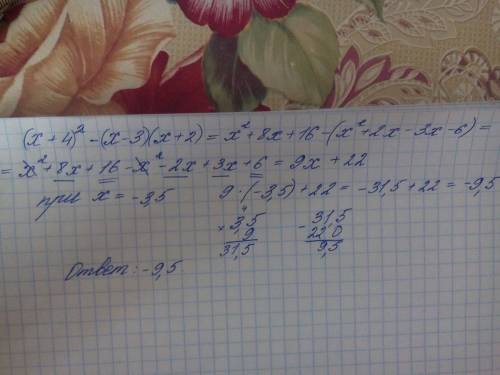 (x + 4)² - (x - 3)(x + 2) = x² + 8x + 16 - (x² + 2x - 3x - 6) =
= x² + 8x + 16 - x² - 2x + 3x + 6 = 9x + 22
при x = -3,5 9 · (-3,5) + 22 = -31,5 + 22 = -9,5
4
× 3,5 - 31,5
9 22 0
31,5 9,5
Ответ: -9,5